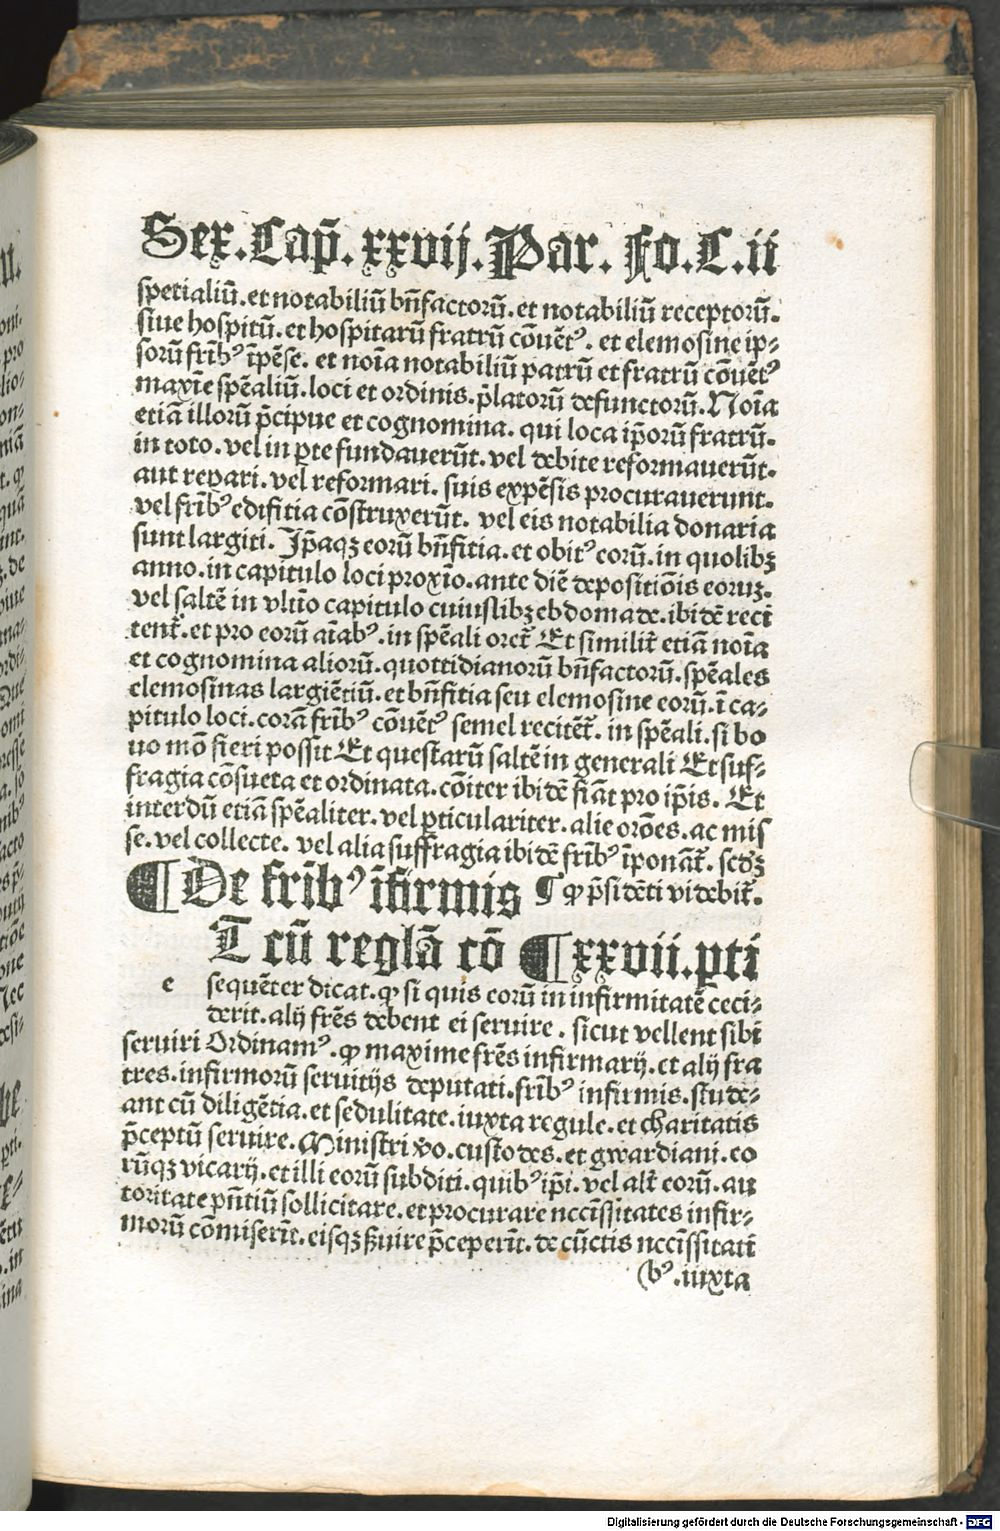 Sex. Cap̄. xxvij. Par. Fo. C. ii
spetialiū. et notabiliū bn̄factorū. et notabiliū receptorū.
siue hospitū. et hospitarū fratrū cōuēt⁹. et elemosine ip⸗
sorū frīb⁹ īpēse. et noīa notabiliū patrū et fratrū cōuēt⁹
maxīe spēaliū. loci et ordinis. p̄latorū defunctorū. Noīa
etiā illorū p̄cipue et cognomina. qui loca ip̄orū fratrū.
in toto. vel in ꝑte fundauerūt. vel debite reformauerūt.
aut repari. vel reformari. suis expēsis procurauerunt.
vel frīb⁹ edifitia cōstruxerūt. vel eis notabilia donaria
sunt largiti. Ip̄aqꝫ eorū bn̄fitia. et obit⁹ eorū. in quolibꝫ
anno. in capitulo loci proxīo. ante diē depositiōis eoruꝫ.
vel saltē in vltīo capitulo cuiuslibꝫ ebdomade. ibidē reci
tent̄. et pro eorū aīab⁹. in spēali oret̄ Et similit̄ etiā noīa
et cognomina aliorū. quottidianorū bn̄factorū. spēales
elemosinas largiētiū. et bn̄fitia seu elemosine eorū. ī ca⸗
pitulo loci. corā frīb⁹ cōuēt⁹ semel recitēt̄. in spēali. si bo
uo mō fieri possīt Et questarū saltē in generali Et suf⸗
fragia cōsueta et ordinata. cōiter ibidē fiāt pro ip̄is. Et
interdū etiā spēaliter. vel ꝑticulariter. alie orōes. ac mis
se. vel collecte. vel alia suffragia ibidē frīb⁹ īponāt̄. secdꝫ
¶ De frīb⁹ īfirmis ¶ ꝙ p̄sidēti videbit̄.
T cū reglā cō ¶ xxvii. ꝑti
e sequēter dicat. ꝙ si quis eorū in infirmitatē ceci⸗
derit. alij frēs debent ei seruire. sicut vellent sibi
seruiri Ordinam⁹. ꝙ maxime frēs infirmarij. et alij fra
tres. infirmorū seruitijs deputati. frīb⁹ infirmis. stude⸗
ant cū diligētia. et sedulitate. iuxta regule. et charitatis
p̄ceptū seruire. Ministri v̾o. custodes. et gwardiani. eo
rūqꝫ vicarij. et illi eorū subditi. quib⁹ ip̄i. vel alt̄ eorū. au
toritate pn̄tiū sollicitare. et procurare nccīssitates infir⸗
morū cōmiserīt. eisqꝫ ẜuire p̄ceperīt. de cūctis nccīssitati
(b⁹. iuxta
Digitalisierung gefördert durch die Deutsche Forschungsgemeinschaft - DFG